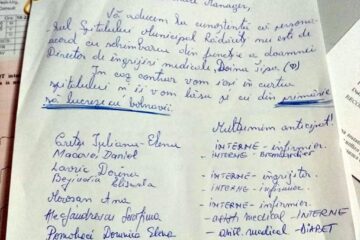 Manager,
Vă aducem la cunoștință că perso
nul Spitalului Municipal Rădăuți nu este de
acord cu schimbarea din funcție a doamnei
Director de îngrijiri medicale, Doina Țipar
În caz contrar vom ieși în curtea
spitalului și îi vom lăsa și ei din primărie
să lucreze cu bolnavii.
Mulțumim anticipat!
Crețu Iuliana-Elena INTERNE - infirmier.
Macovei Daniel - INTERNE - brancardier
Lavric Dorina - INTERNE - îngrijitor.
Elisabeta - INTERNE - infirmier
Morosan Ana - INTERNE - infirmier.
Josefina - asist medical - INTERNE
Domnica Elena - asist. medical - DIABET